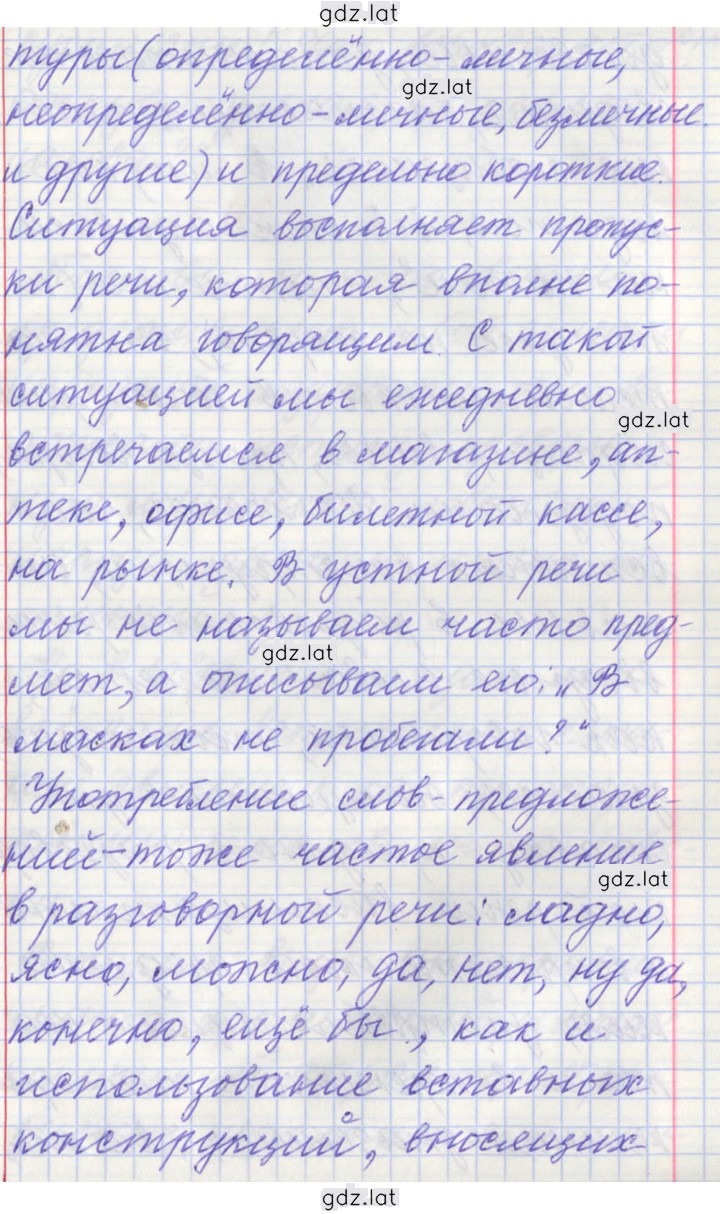 gdz.lat
туры (определённо-личные,
gdz.lat
неопределённо-личные, безличные
и другие) и предельно короткие.
Ситуация восполняет пропус-
ки речи, которая вполне по-
нятна говорящим. С такой
ситуацией мы ежедневно
gdz.lat
встречаемся в магазине, ап-
теке, офисе, билетной кассе,
на рынке. В устной речи
мы не называем часто пред-
gdz.lat
мет, а описываем его: „В
масках не пробегали?“
Употребление слов-предложе-
ний-тоже частое явление
gdz.lat
в разговорной речи: ладно,
ясно, можно, да, нет, ну да,
конечно, ещё бы, как и
использование вставных
конструкций, вносящих-
gdz.lat